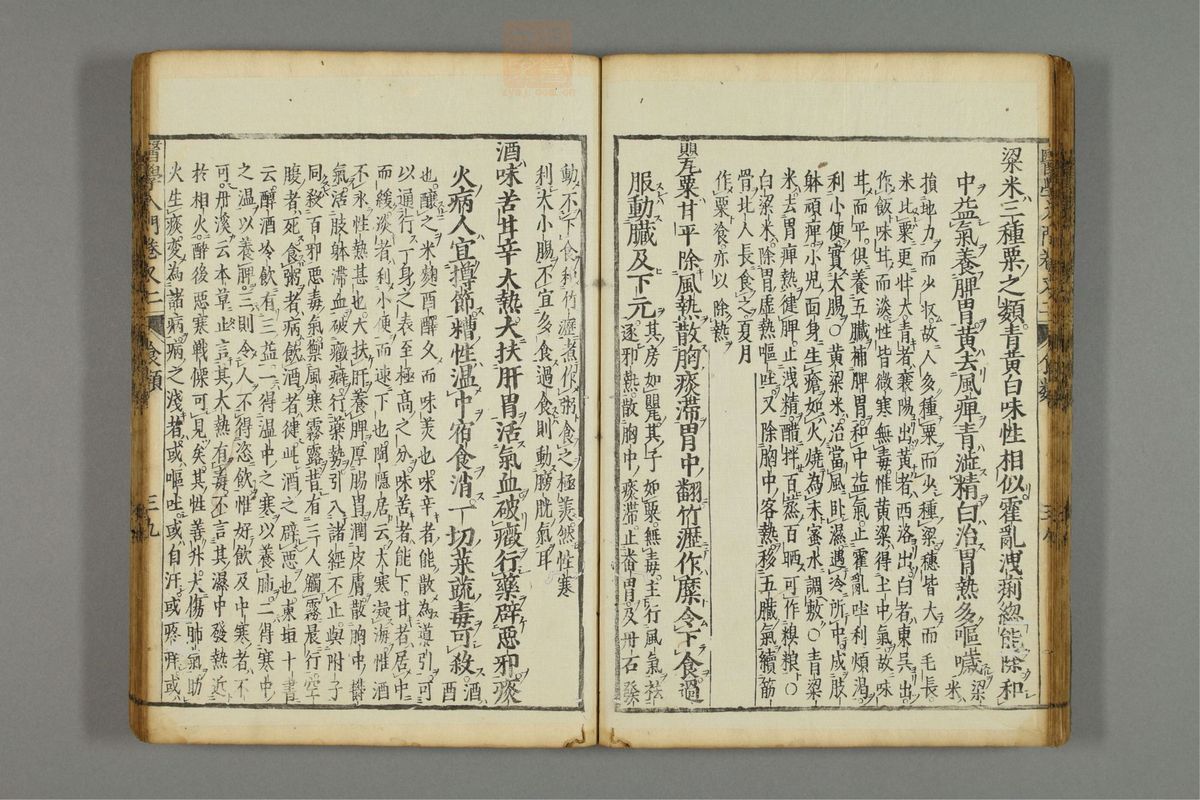 粱米三種粟之類青黃白味性相似霍亂洩痢總能除和
中益氣養脾胃黃去風痺青澁精白治胃熱多嘔噦 粱米
損地力而少收故人多種粟而少種粱穗皆大而毛長
米比粟更壯大青者襄陽出黃者西洛出白者東吳出
作飯味甘而淡性皆微寒無毒惟黃粱得土中氣故味
甘而平俱養五臟補脾胃和中益氣止霍亂吐利煩渴
利小便實大腸○黃粱米治當風卧濕遇冷所中成肢
躰頑痺小兒面身生瘡如火燒為末蜜水調敷○青粱
米去胃痺熱僻脾止洩精醋拌百蒸百晒可作糗粮○
白粱米除胃虛熱嘔吐又除胸中客熱移五臟氣續筋
骨北人長食之夏月
作粟飡亦以除熱
罌粟甘平除風熱散胸痰滯胃中翻竹瀝作糜令下食過
服動臟及下元 其房如罌其子如粟無毒主行風氣祛
逐邪熱散胸中痰滯止畨胃及丹石發
動不下食和竹瀝煮作粥食之極美然性寒
利大小腸不宜多食過食則動膀胱氣耳
酒味苦甘辛大熱大扶肝胃活氣血破癥行藥辟惡邪痰
火病人宜撙節糟性溫中宿食消一切菜蔬毒可殺 酒酉
也釀之米麴酉醳久而味美也味辛者能散為導引可
以通行一身之表至極高之分味苦者能下甘者居中
而緩淡者利小便而速下也陶隱居云大寒凝海惟酒
不氷性熱甚也大扶肝養脾厚腸胃潤皮膚散胸中欝
氣活肢躰滯血破癥癖行藥勢引入諸經不止與附子
同殺百邪惡毒氣禦風寒霧露昔有三人觸霧晨行空
腹者死食粥者病飲酒者徤此酒之辟惡也東垣十書
云醇酒冷飲有三益一得溫中之寒以養肺二得寒中
之溫以養脾三則令人不得恣飲惟好飲及中寒者不
可丹溪云本草止言其大熱有毒不言其濕中發熱近
於相火醉後惡寒戰慄可見矣其性善升大傷肺氣助
火生痰變為諸病病之淺者或嘔吐或自汗或疼痒或
醫學入門卷又二 食類 三九